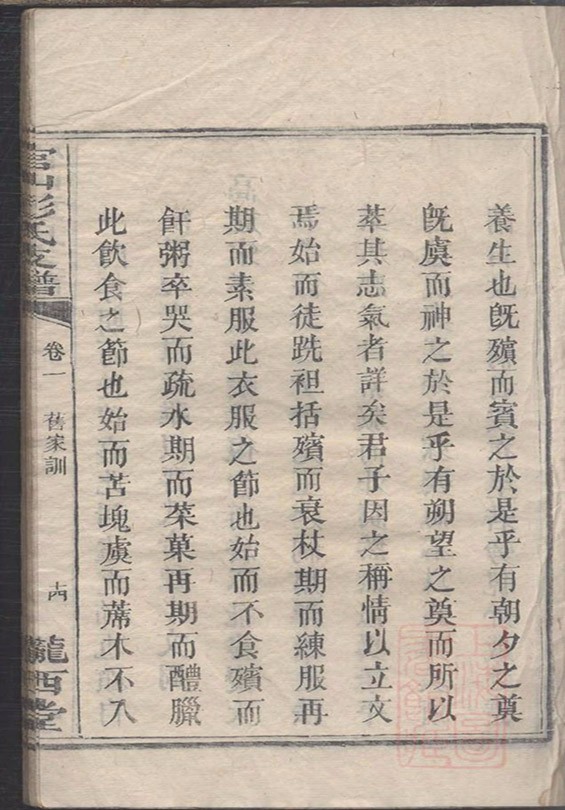 養生也旣殯而賓之於是乎有朝夕之奠
旣虞而神之於是乎有朔望之奠而所以
萃其志氣者詳矣君子因之稱情以立文
焉始而徒跣袒括殯而衰杖期而練服再
期而素服此衣服之節也始而不食殯而
飦粥卒哭而疏水期而菜菓再期而醴臘
此飲食之節也始而苫塊虞而蓆木不入
官山彭氏支譜
卷一
舊家訓
十四
隴西堂